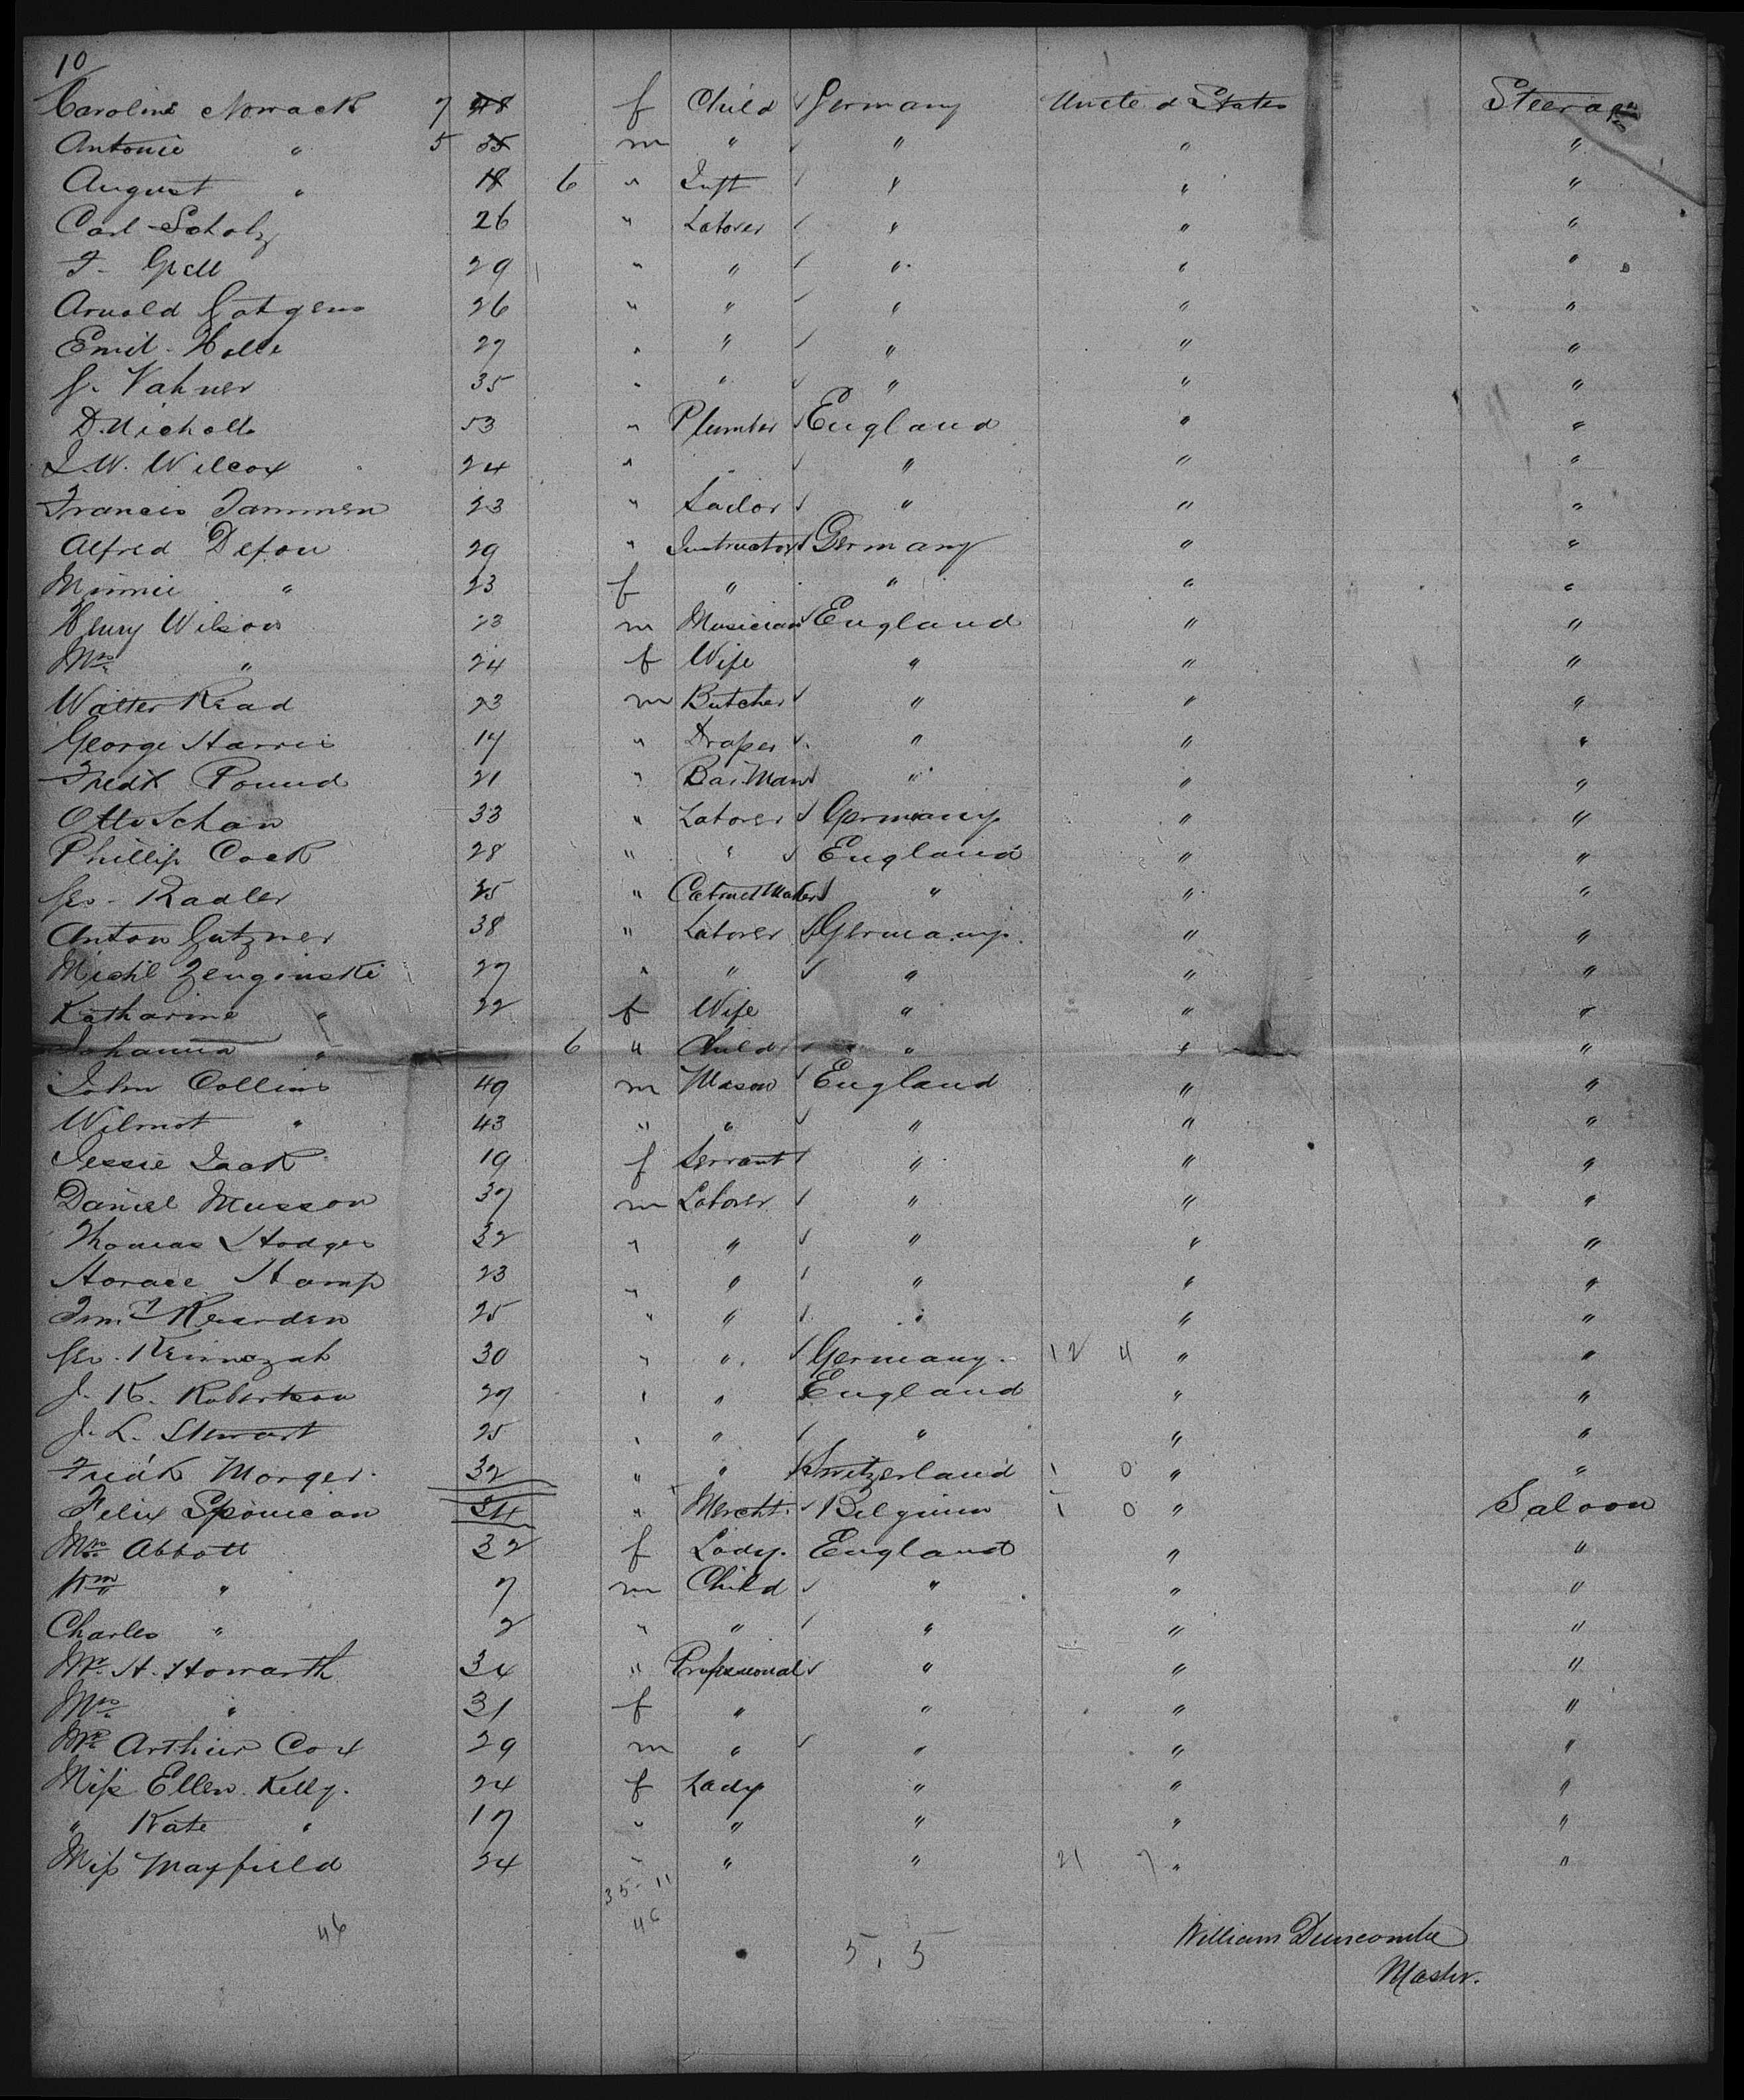 10
Caroline Nowack 7 48 f Child ✓ Germany United States Steerage
Antonie " 5 35 m " ✓ " " "
August " 18 6 " Inft ✓ " " "
Carl Scholz 26 " Laborer ✓ " " "
F. Grell 29 " " ✓ " " "
Arnold 26 " " ✓ " " "
Emil Holle 27 " " ✓ " " "
G. Vahner 35 " " ✓ " " "
D. Nicholls 53 " Plumber ✓ England " "
J. W. Wilcox 24 " " ✓ " " "
Francis Tammen 23 " Sailor ✓ " " "
Alfred Defou 29 " Instructor ✓ Germany " "
Minnie " 23 f " " " "
Henry Wilson 23 m Musician ✓ England " "
Mrs " 24 f Wife " " "
Walter Read 23 m Butcher ✓ " " "
George Harris 17 " Draper ✓ " " "
Fredk Pound 21 " Bar Man ✓ " " "
Otto Schan 33 " Laborer ✓ Germany " "
Phillip Cock 28 " " ✓ England " "
Geo. Radler 25 " Cabinet Maker ✓ " " "
Anton Gutzmer 38 " Laborer ✓ Germany " "
Michl Zenginski 27 " " ✓ " " "
Katharine " 22 f Wife " " "
Johanna " 6 " Child ✓ " " "
John Collins 49 m Mason ✓ England " "
Wilmot " 43 " " ✓ " " "
Jessie Isaak 19 f Servant ✓ " " "
Daniel Musson 37 m Laborer ✓ " " "
Thomas Hodges 32 " " ✓ " " "
Horace Stamp 23 " " ✓ " " "
Rearden 25 " " ✓ " " "
Geo. 30 " " ✓ Germany 12 4 " "
J. K. Robertson 27 " " England " "
J. L. Stewart 25 " " ✓ " " "
Fredk Morger 32 " " ✓ Switzerland 1 0 " "
Felix 34 " Mercht. ✓ Belgium 1 0 " Saloon
Mrs Abbott 32 f Lady. England " "
Wm " 7 m Child ✓ " " "
Charles " 2 " " ✓ " " "
Mr H. Howarth 34 " Professional ✓ " " "
Mrs " 31 f " " " "
Mr Arthur Cox 29 m " ✓ " " "
Miss Ellen Kelly. 24 f Lady " " "
" Kate " 17 " " " " "
Miss Mayfield 24 " " " 21 7 " "
35 - 11
46 46
5, 5
William Duncombe
Master.